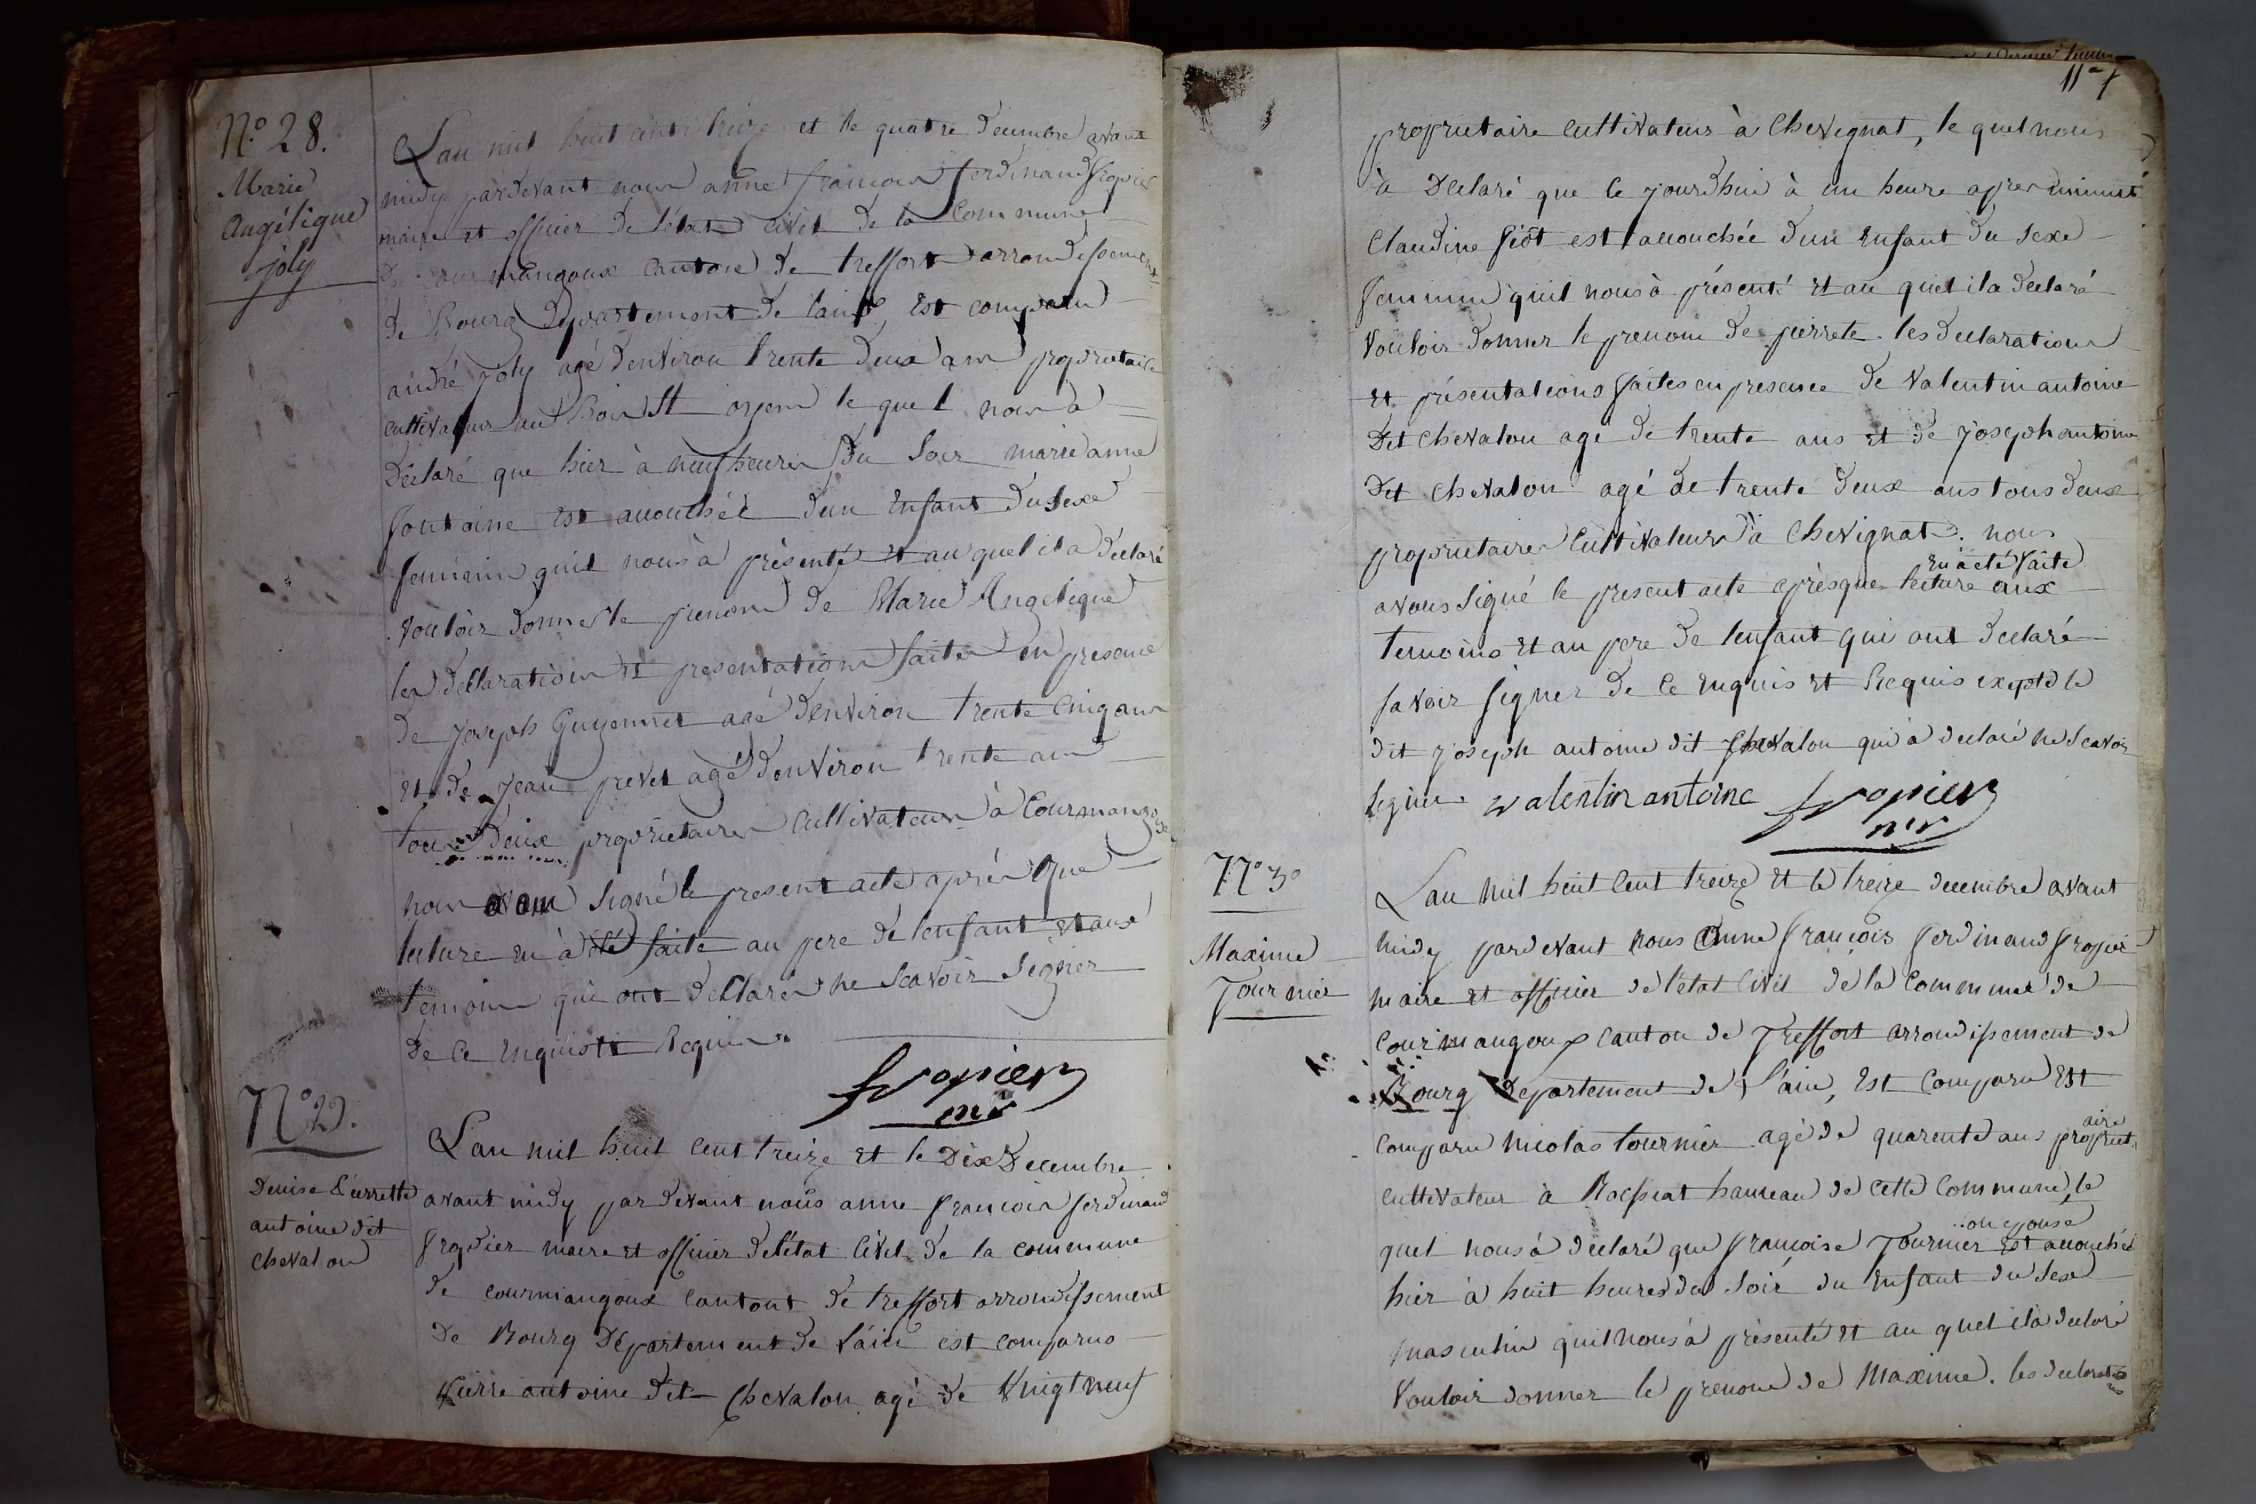 N.o 28.
Marie
Angélique
joly
L'an mil huit cent treize et le quatre Decembre avant
midy pardevant nous anne françois ferdinand fropier
maire et officier de l'état civil de la Commune
De courmangoux Canton de treffort arrondissement
de Bourg département de lain Est comparu
andré joly agé d'environ trente deux ans propriétaire
cultivateur au Bois St le quel nous à
Déclaré que hier à neuf heures Du soir marie anne
fontaine Est accouchée d'un Enfant Du sexe
feminin quil nous à présenté et au quel il a déclaré
vouloir donner le prenom de Marie Angelique
les déclaration et presentation faites en presence
de Joseph Guyennet agé d'environ trente cinq ans
et de Jean prevet agé denviron trente ans
tous deux propriétaires cultivateurs à Courmangoux
nous avons signé le present acte après que
lecture en à été faite au pere de lenfant et aux
temoins qui ont déclarés ne scavoir signer
de ce Enquis et Requis.
fropier
mr
N.o 29.
Denise Pierrette
antoine dit
chevalon
L'an mil huit cent treize et le Dix Decembre
avant midy pardevant nous anne francois ferdinand
fropier maire et officier delétat civil de la commune
de courmangoux cantont de treffort arrondissement
De Bourg Département de Lain est comparus
Pierre antoine dit Chevalon agé de vingt neuf
117
propriétaire cultivateur à Chevignat, le quel nous
à Déclaré que ce jourdhui à un heure apres minuit
Claudine fiot est accouchée d'un Enfant du sexe
feminin quil nous à présenté et au quel il a déclaré
vouloir donner le prenom de pierrete les declaration
et présentations faites en presence de valentin antoine
Dit chevalon agé de trente ans et de joseph antoine
Dit chevalon agé de trente deux ans tous deux
propriétaires cultivateurs à Chevignat. nous
en à eté faite
avons signé le present acte après que lecture aux
temoins et au pere de lenfant qui ont déclaré
savoir signer de ce enquis et Requis exepté le
dit joseph antoine dit chevalon qui à déclaré ne scavoir
signer. valentin antoine fropier
mr
N.o 30
Maxime
Tournier
L'an mil huit cent treize et le treize decembre avant
midy pardevant nous Anne françois ferdinand fropier
maire et officier de létat civil de la commune de
courmangoux canton de Treffort arrondissement de
Bourg Departement de L'ain, Est comparu Est
aire
comparu nicolas tournier agé de quarente ans propriet
cultivateur à Rosssiat hameau de cette commune, le
son epouse
quel nous à déclaré que françoise Tournier est accouchée
hier à huit heures du soir du enfant du sexe
masculin quil nous à présenté et au quel il a declaré
vouloir donner le prenom de Maxime. les declarations